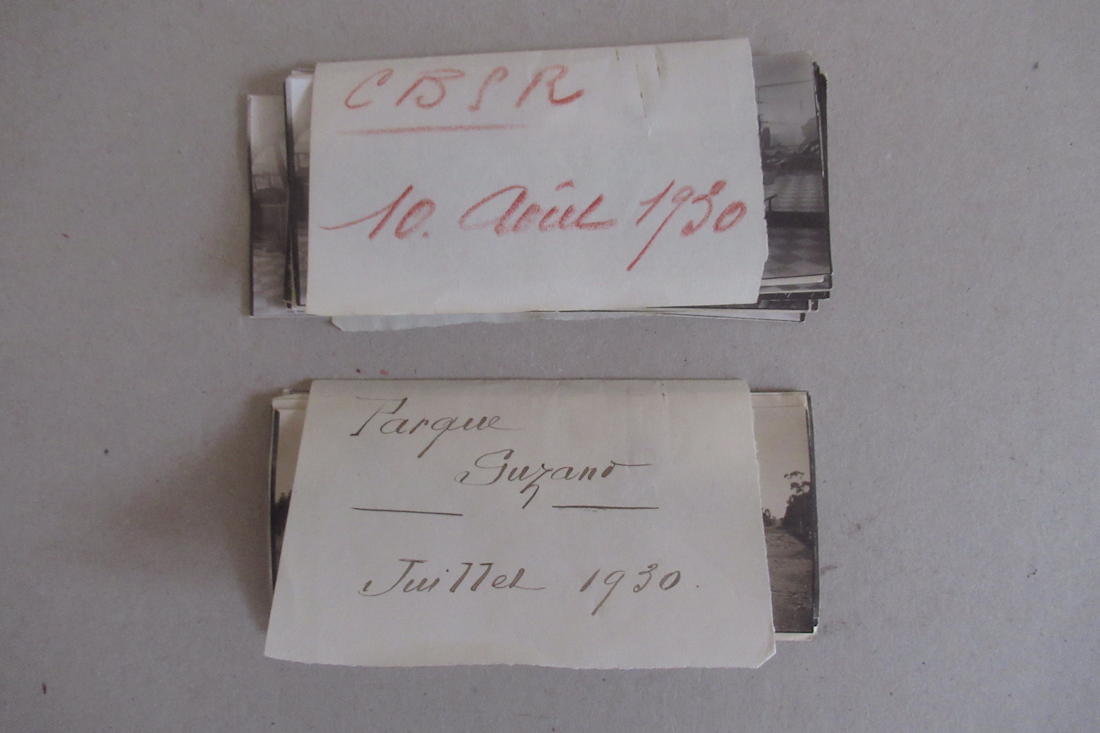 C B S R
10. Août 1930
Parque
Suzano
Juillet 1930.